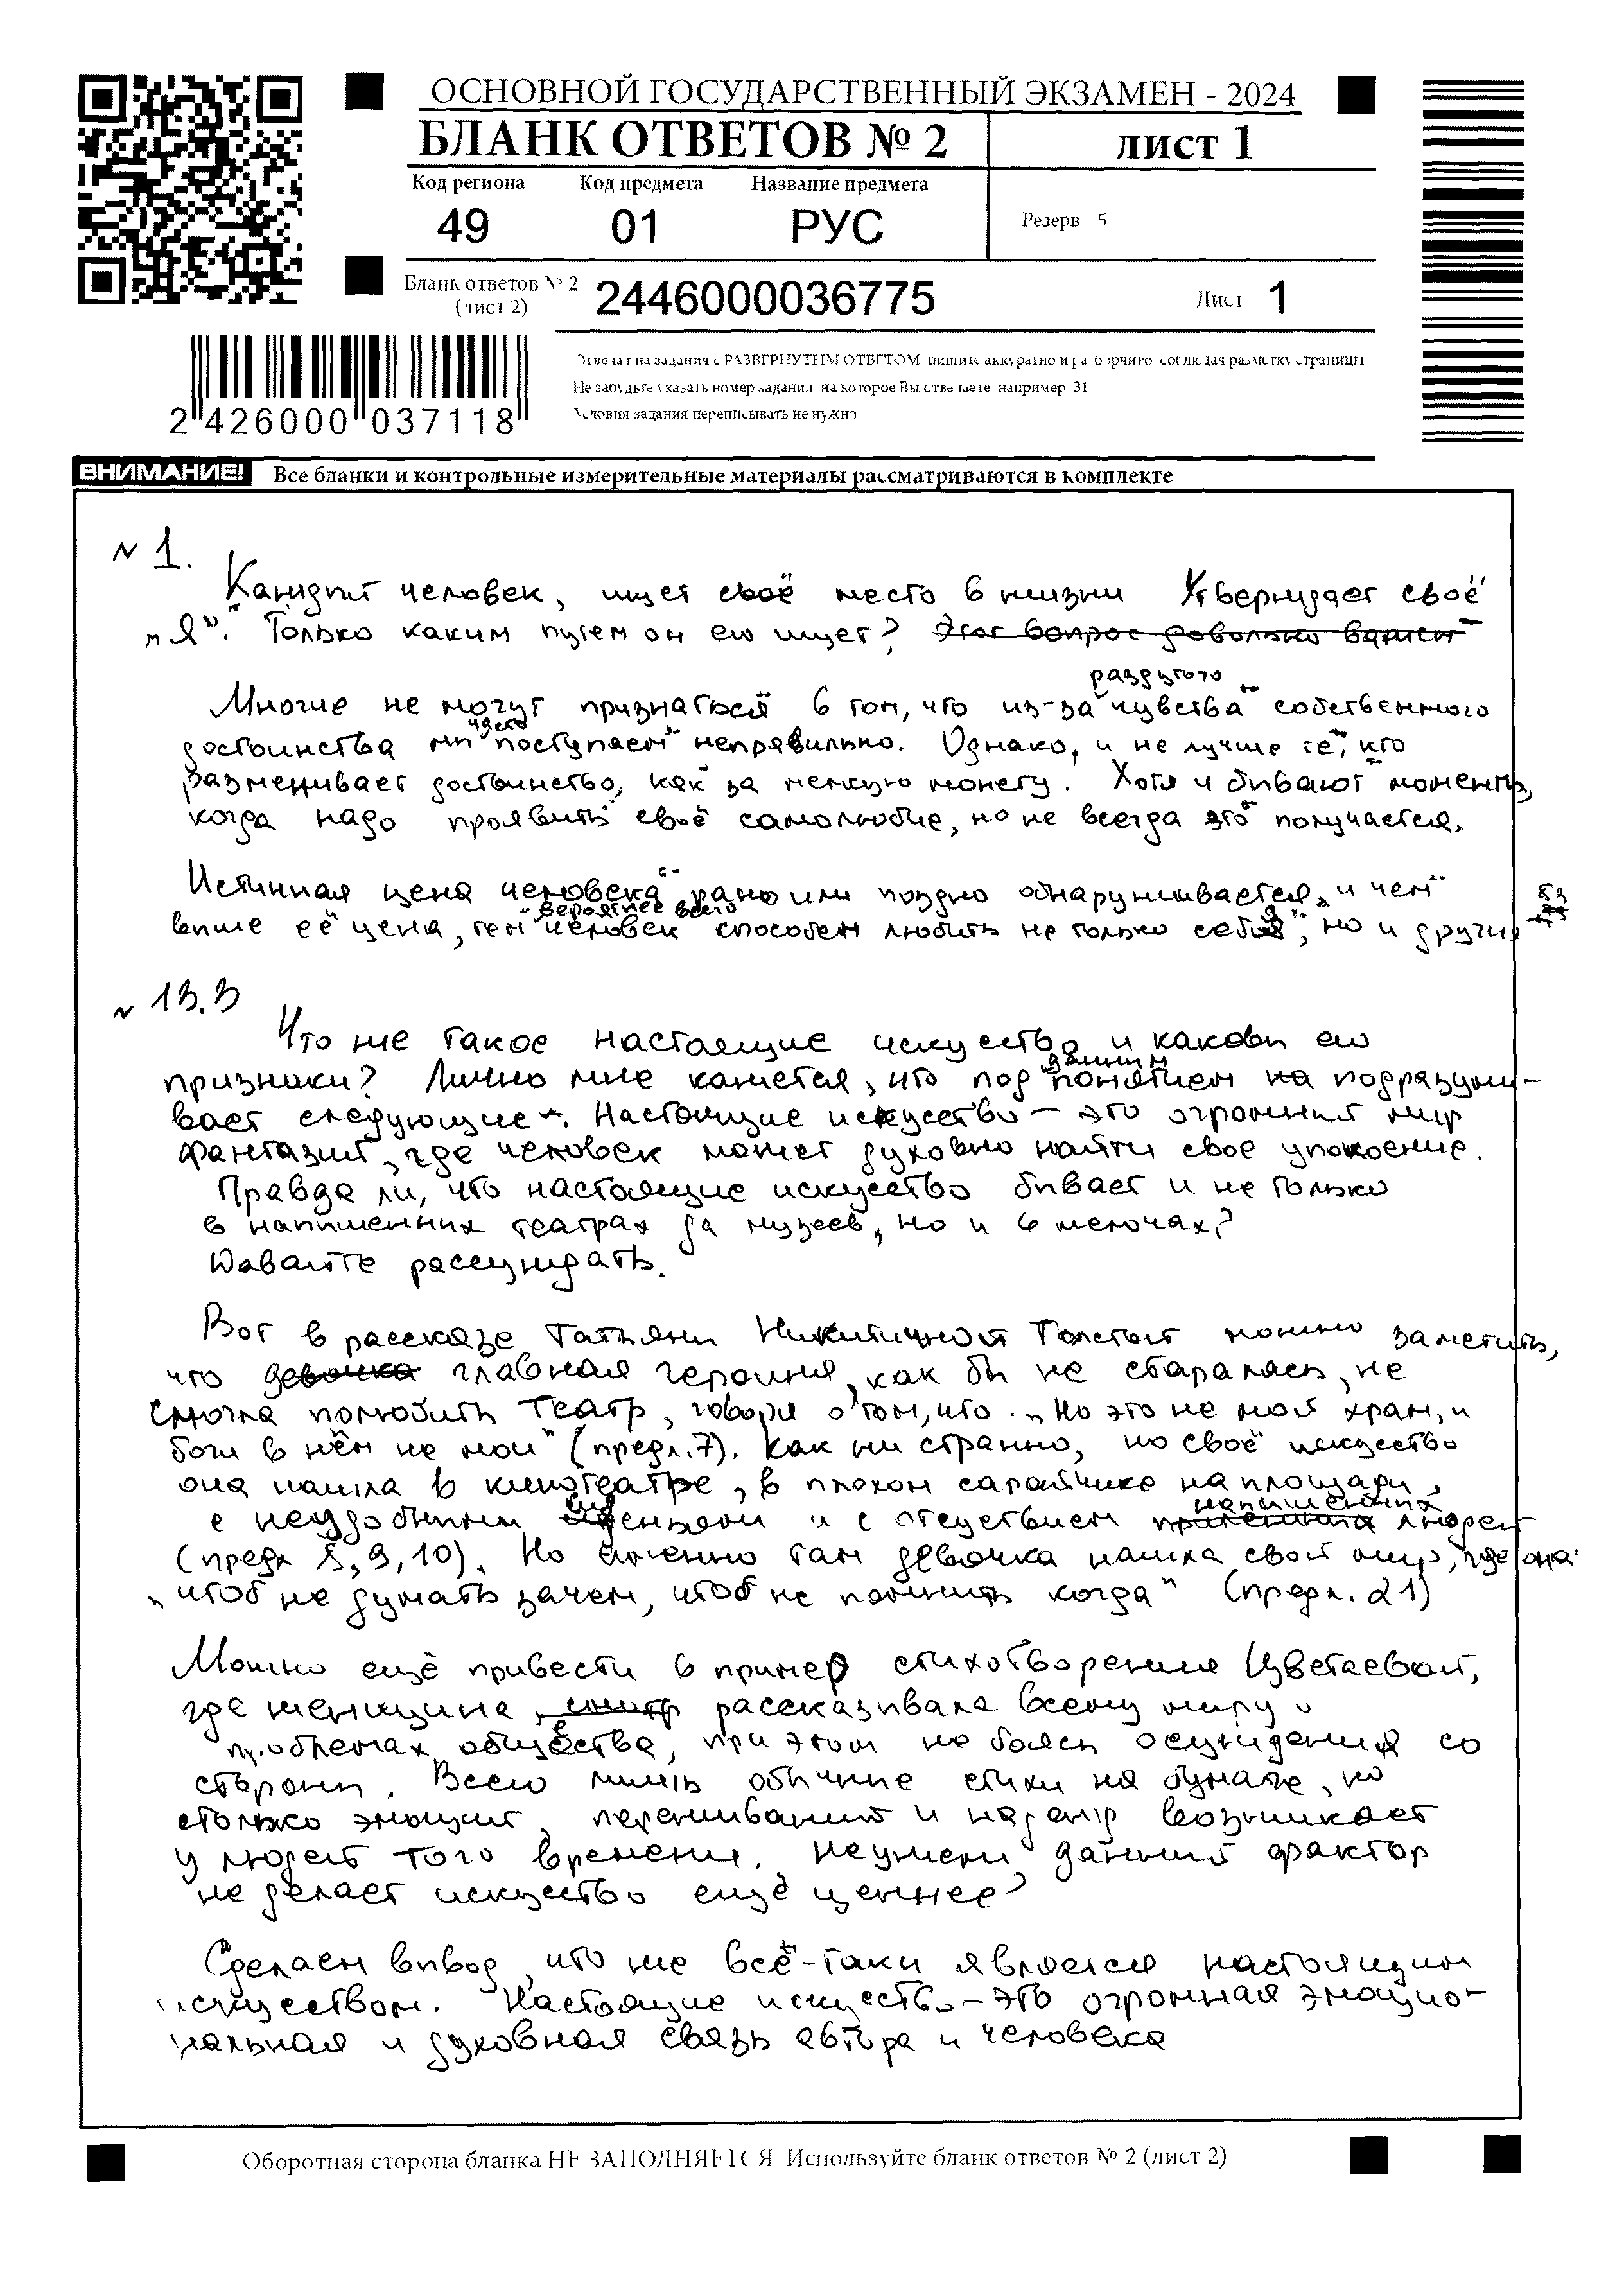 ОСНОВНОЙ ГОСУДАРСТВЕННЫЙ ЭКЗАМЕН - 2024
БЛАНК ОТВЕТОВ № 2
лист 1
Код региона Код предмета Название предмета
49 01 РУС
Резерв 5
Бланк ответов № 2
(лист 2)
2446000036775
Лист 1
2 426000 037118
Ответы на задания с РАЗВЕРНУТЫМ ОТВЕТОМ пишите аккуратно и разборчиво, соблюдая разметку страницы
Не забудьте указать номер задания, на которое Вы отвечаете, например 31
Условия задания переписывать не нужно
ВНИМАНИЕ! Все бланки и контрольные измерительные материалы рассматриваются в комплекте
№ 1.
Каждый человек, ищет своё место в жизни Утверждает своё
„Я". Только каким путем он его ищет? Этот вопрос довольно важен
раздутого
Многие не могут признаться в том, что из-за чувства собственного
часто
достоинства мы поступаем неправильно. Однако, и не лучше те, кто
разменивает достоинство, как за мелкую монету. Хотя и бывают моменты,
когда надо проявить своё самолюбие, но не всегда это получается.
Истинная цена человека рано или поздно обнаруживается, и чем
вероятнее всего
выше её цена, тем человек способен любить не только себя, но и других
53
№ 13.3
Что же такое настоящие искуство и каковы его
данным
призники? Лично мне кажется, что под понятием на подразуми-
вает следующие. Настоящие искуство – это огромный мир
фантазий, где человек может духовно найти свое упокоение.
Правда ли, что настоящие искуство бывает и не только
в напыщенных театрах да музеев, но и в мелочах?
Давайте рассуждать.
Вот в рассказе Татьяны Никитичной Толстой можно заметить,
что девочка главная героиня, как бы не старалась, не
смогла полюбить театр, говоря о том, что „Но это не мой храм, и
боги в нём не мои" (предл. 7). Как ни странно, но своё искуство
она нашла в кинотеатре, в плохом сарайчике на площади,
напыщенных
с неудобными сиденьями и с отсуствием людей
(предл 8, 9, 10). Но именно там девочка нашла свой мир, где она
„чтоб не думать зачем, чтоб не помнить когда" (предл. 21)
Можно ещё привести в пример стихотворение Цветаевой,
где женщина, рассказывала всему миру о
проблемах общества, при этом не боясь осуждения со
стороны. Всего лишь обычные стихи на бумаге, но
столько эмоций, переживаний и надежд возникает
у людей того времени. Неужели данный фактор
не делает искуство ещё ценнее?
Сделаем вывод, что же всё-таки является настоящим
искуством. Настоящие искуство – это огромная эмоцио-
нальная и духовная связь автора и человека
Оборотная сторона бланка НЕ ЗАПОЛНЯЕТСЯ Используйте бланк ответов № 2 (лист 2)